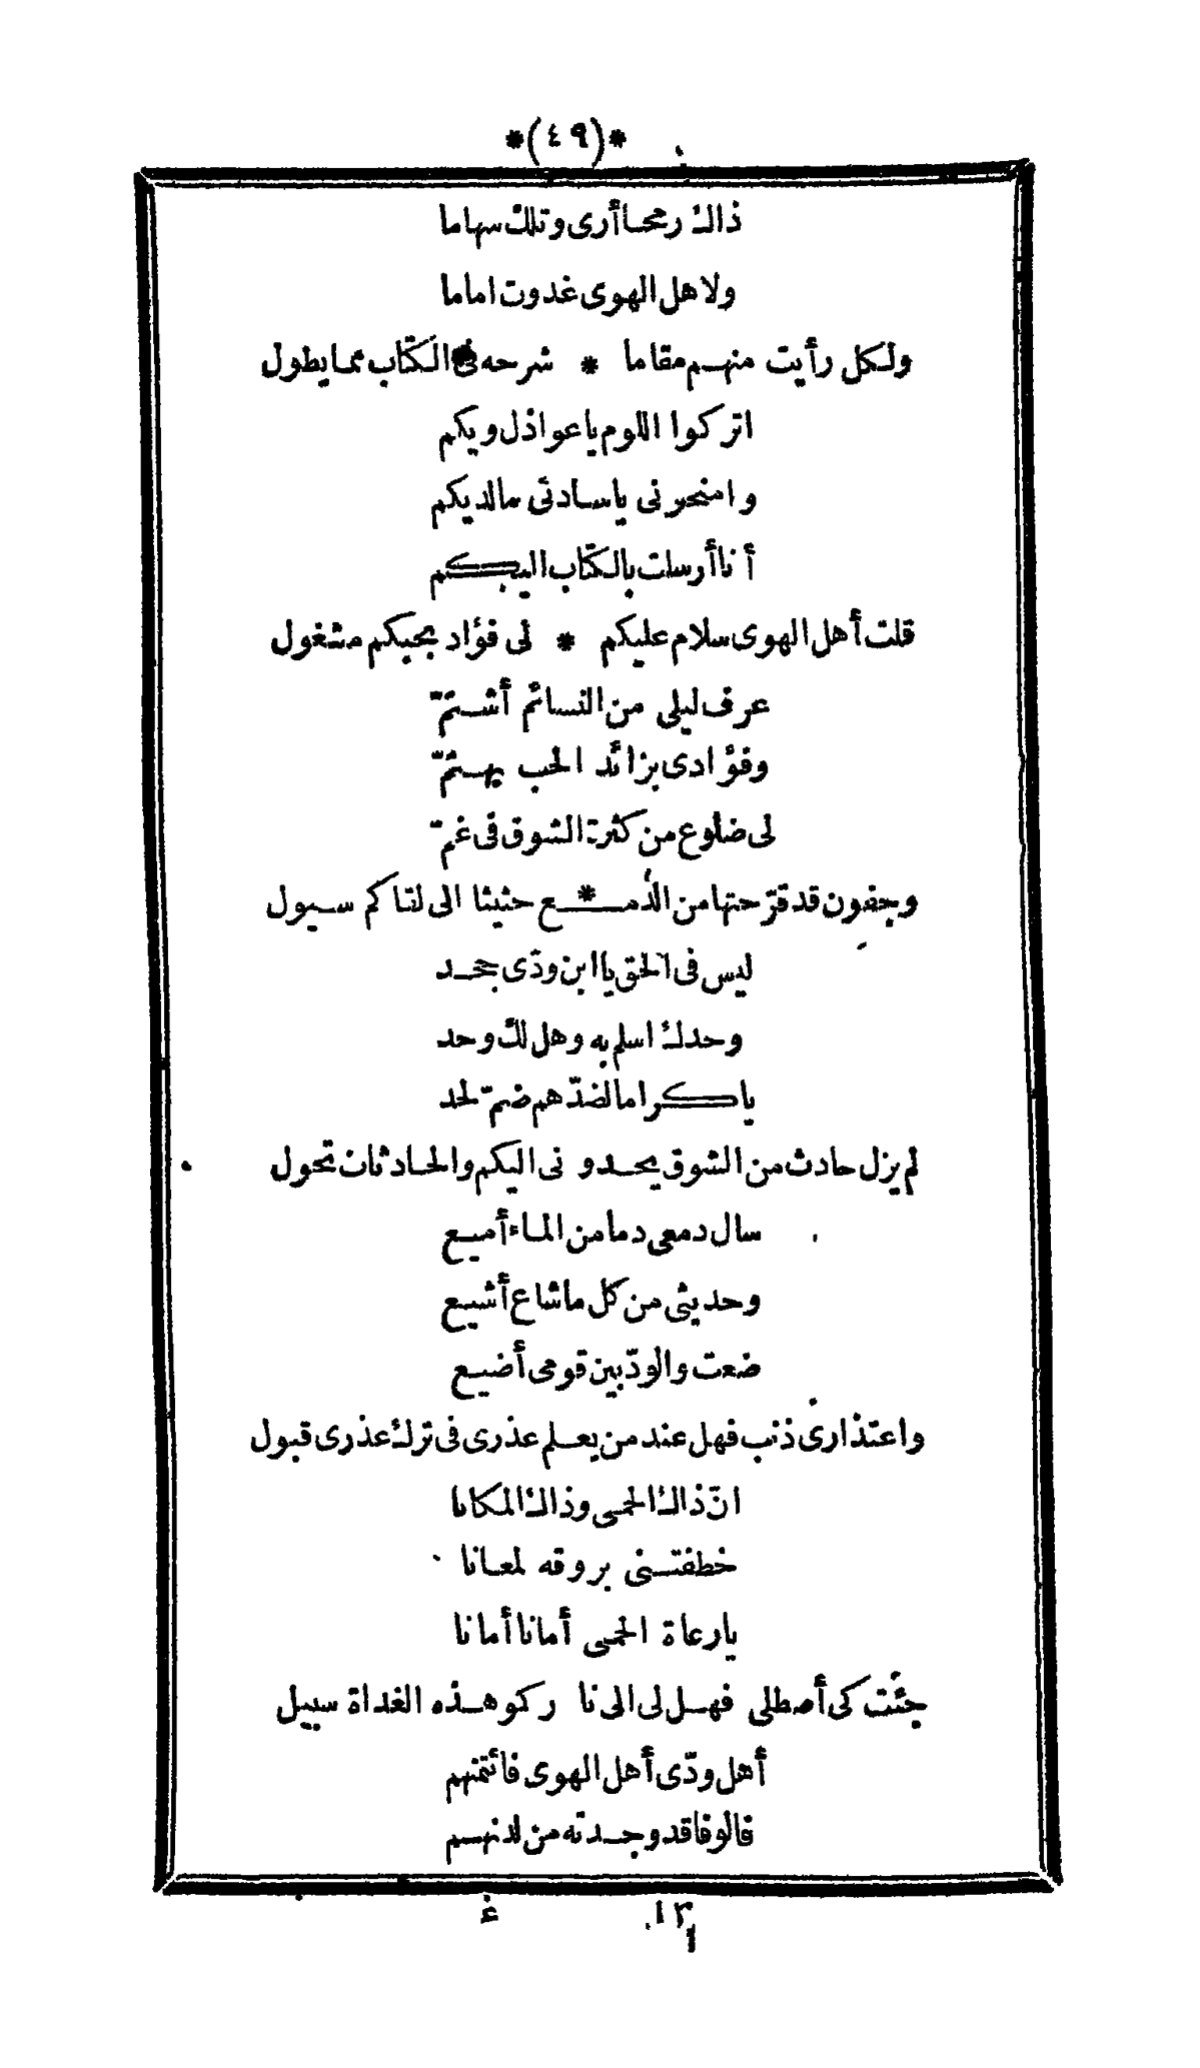 *(٤٩)*
ذاك رمحا أرى وتلك سهاما
ولاهل الهوى غدوت اماما
ولكل رأيت منهم مقاما * شرحه فى الكتاب مما يطول
اتركوا اللوم يا عواذل ويكم
وامنحونى يا سادتى مالديكم
أنا أرسلت بالكتاب اليكم
قلت أهل الهوى سلام عليكم * لى فؤاد بحبكم مشغول
عرف ليلى من النسائم أشتمّ
وفؤادى بزائد الحب يهتمّ
لى ضلوع من كثرة الشوق فى غمّ
وجفون قد قرّحتها من الدمـ * ـع حثيثا الى لقاكم سيول
ليس فى الحق يا ابن ودّى جحد
وحدك اسلم به وهل لك وحد
يا كراما لضدّهم ضمّ لحد
لم يزل حادث من الشوق يحدو نى اليكم والحادثات تحول
سال دمعى دما من الماء أميع
وحديثى من كل ما شاع أشيع
ضعت والودّ بين قومى أضيع
واعتذارى ذنب فهل عند من يعلم عذرى فى ترك عذرى قبول
انّ ذاك الحمى وذاك المكانا
خطفتنى بروقه لمعانا
يا رعاة الحمى أمانا أمانا
جئت كى أصطلى فهل لى الى نا ركمو هذه الغداة سبيل
أهل ودّى أهل الهوى فائتمنهم
فالوفا قد وجدته من لدنهم